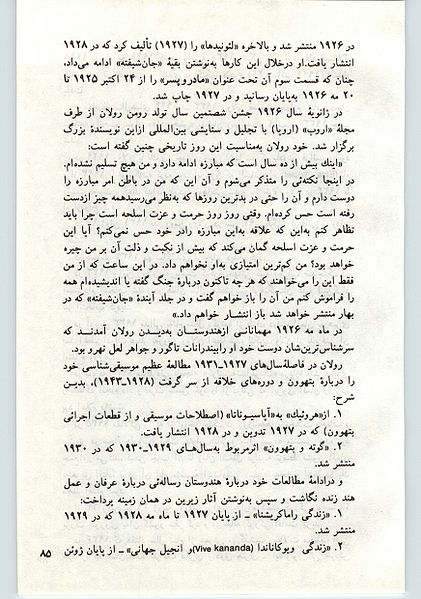 در ۱۹۲۶ منتشر شد و بالاخره «لئونیدها» را (۱۹۲۷) تألیف کرد که در ۱۹۲۸
انتشار یافت. او درخلال این کارها به‌نوشتن بقیهٔ «جان‌شیفته» ادامه می‌داد،
چنان که قسمت سوم آن تحت عنوان «مادر و پسر» را از ۲۴ اکتبر ۱۹۲۵ تا
۲۰ مه ۱۹۲۶ به‌پایان رسانید و در ۱۹۲۷ چاپ شد.
در ژانویهٔ سال ۱۹۲۶ جشن شصتمین سال تولد رومن رولان از طرف
مجلهٔ «اروپ» (اروپا) با تجلیل و ستایشی بین‌المللی ازاین نویسندهٔ بزرگ
برگزار شد. خود رولان به‌مناسبت این روز تاریخی چنین گفته است:
«اینك بیش از ده سال است که مبارزه ادامه دارد و من هیچ تسلیم نشده‌ام.
در اینجا نکته‌ئی را متذکر می‌شوم و آن این که من در باطن امر مبارزه را
دوست دارم و آن را حتی در بدترین روزها که به‌نظر می‌رسیدهمه چیز ازدست
رفته است حس کرده‌ام. وقتی روز روز حرمت و عزت اسلحه است چرا باید
تظاهر کنم به‌این که علاقه به‌این مبارزه رادر خود حس نمی‌کنم؟ آیا این
حرمت و عزت اسلحه گمان می‌کند که بیش از نکبت و ذلت آن بر من چیره
خواهد بود؟ من کم‌ترین امتیازی به‌او نخواهم داد. در این ساعت که از من
فقط این را می‌خواهند که هر چه تاکنون دربارهٔ جنگ گفته یا اندیشیده‌ام همه
را فراموش کنم من آن را باز خواهم گفت و در جلد آیندهٔ «جان‌شیفته» که در
بهار منتشر خواهد شد باز انتشار خواهم داد.»
در ماه مه ۱۹۲۶ مهمانانی ازهندوستان به‌دیدن رولان آمدند که
سرشناس‌ترین‌شان دوست خود او رابیندرانات تاگور و جواهر لعل نهرو بود.
رولان در فاصلهٔ‌سال‌های ۱۹۲۷ـ۱۹۳۱ مطالعهٔ عظیم موسیقی‌شناسی خود
را دربارهٔ بتهوون و دوره‌های خلاقه از سر گرفت (۱۹۲۸ـ۱۹۴۳)، بدین
شرح:
۱. از«هروئیك» به«آپاسیوناتا» (اصطلاحات موسیقی و از قطعات اجرائی
بتهوون) که در ۱۹۲۷ تدوین و در ۱۹۲۸ انتشار یافت.
۲. «گوته و بتهوون» اثرمربوط به‌سال‌های ۱۹۲۹ـ۱۹۳۰ که در ۱۹۳۰
منتشر شد.
و درادامهٔ مطالعات خود دربارهٔ هندوستان رساله‌ئی دربارهٔ عرفان و عمل
هند زنده نگاشت و سپس به‌نوشتن آثار زیرین در همان زمینه پرداخت:
۱. «زندگی راماکریشنا» ـ از پایان ۱۹۲۷ تا ماه مه ۱۹۲۸ که در ۱۹۲۹
منتشر شد.
۲. «زندگی ویوکاناندا (Vive kananda) و انجیل جهانی» ـ از پایان ژوئن
۸۵